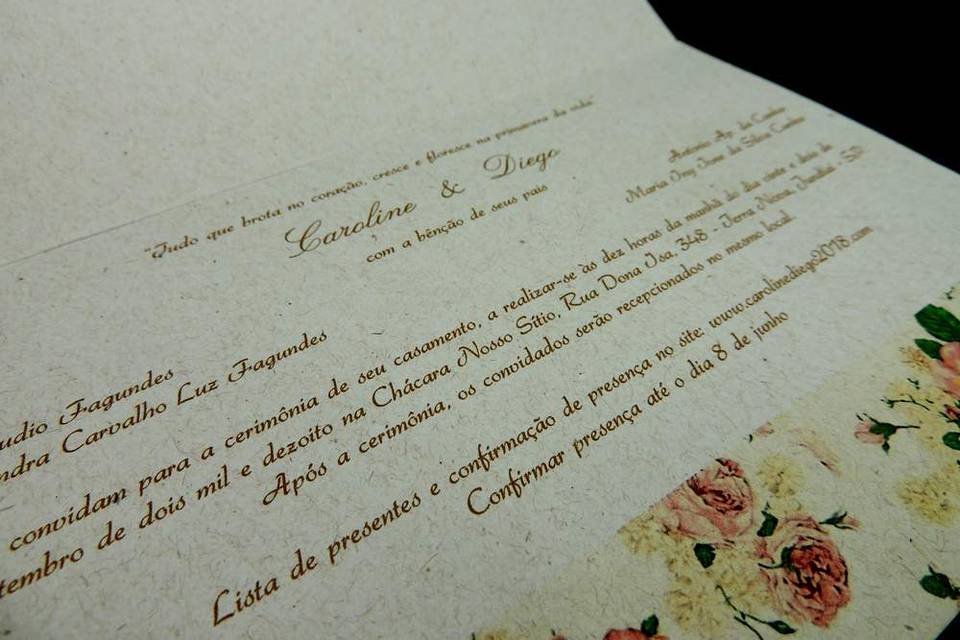 "Tudo que brota no coração, cresce e floresce na primavera da vida"
Caroline & Diego
com a bênção de seus pais
udio Fagundes
ndra Carvalho Luz Fagundes
Antonio Ap. da Cunha
Maria da Silva Cunha
convidam para a cerimônia de seu casamento, a realizar-se às dez horas da manhã do dia vinte e dois de
tembro de dois mil e dezoito na Chácara Nosso Sítio, Rua Dona Isa, 348 - Terra Nossa - SP
Após a cerimônia, os convidados serão recepcionados no mesmo local
Lista de presentes e confirmação de presença no site: www.carolinediego2018.com
Confirmar presença até o dia 8 de junho